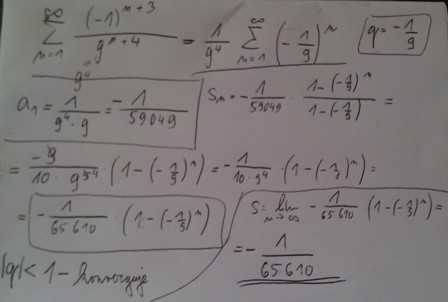 ∞ Σ n=1 (-1)^{n+3} / 9^{n+4} = 1/9^4 ∞ Σ n=1 (-1/9)^n q = -1/9
a_1 = 1/(9^4 · 9) = -1/59049 S_n = -1/59049 · (1-(-1/9)^n)/(1-(-1/9)) =
= -9/(10 · 9^{54}) (1-(-1/9)^n) = -1/(10 · 9^4) · (1-(-1/9)^n) =
= -1/65610 · (1-(-1/9)^n) S = lim n→∞ -1/65610 (1-(-1/9)^n) =
|q| < 1 - konverguje = -1/65610